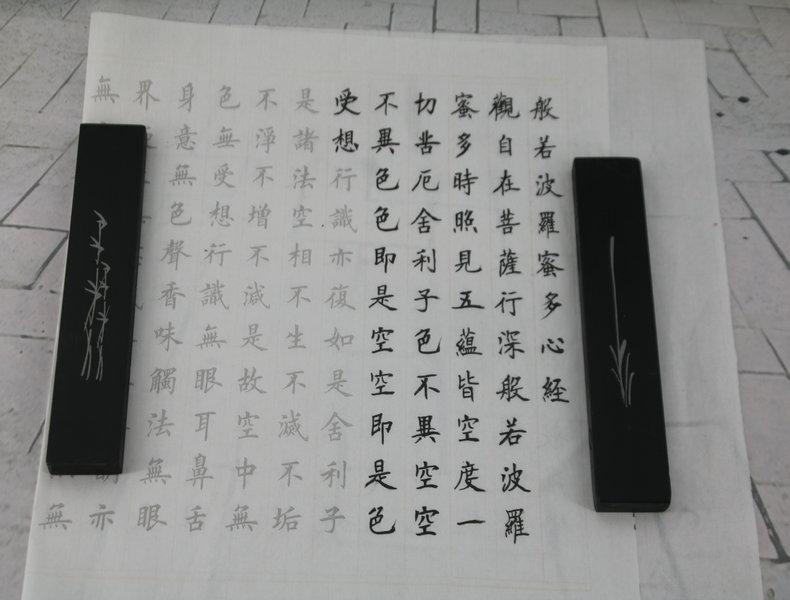 般若波羅蜜多心經
觀自在菩薩行深般若波羅
蜜多時照見五蘊皆空度一
切苦厄舍利子色不異空空
不異色色即是空空即是色
受想行識亦復如是舍利子
是諸法空相不生不滅不垢
不淨不增不減是故空中無
色無受想行識無眼耳鼻舌
身意無色聲香味觸法無眼
界亦
無無